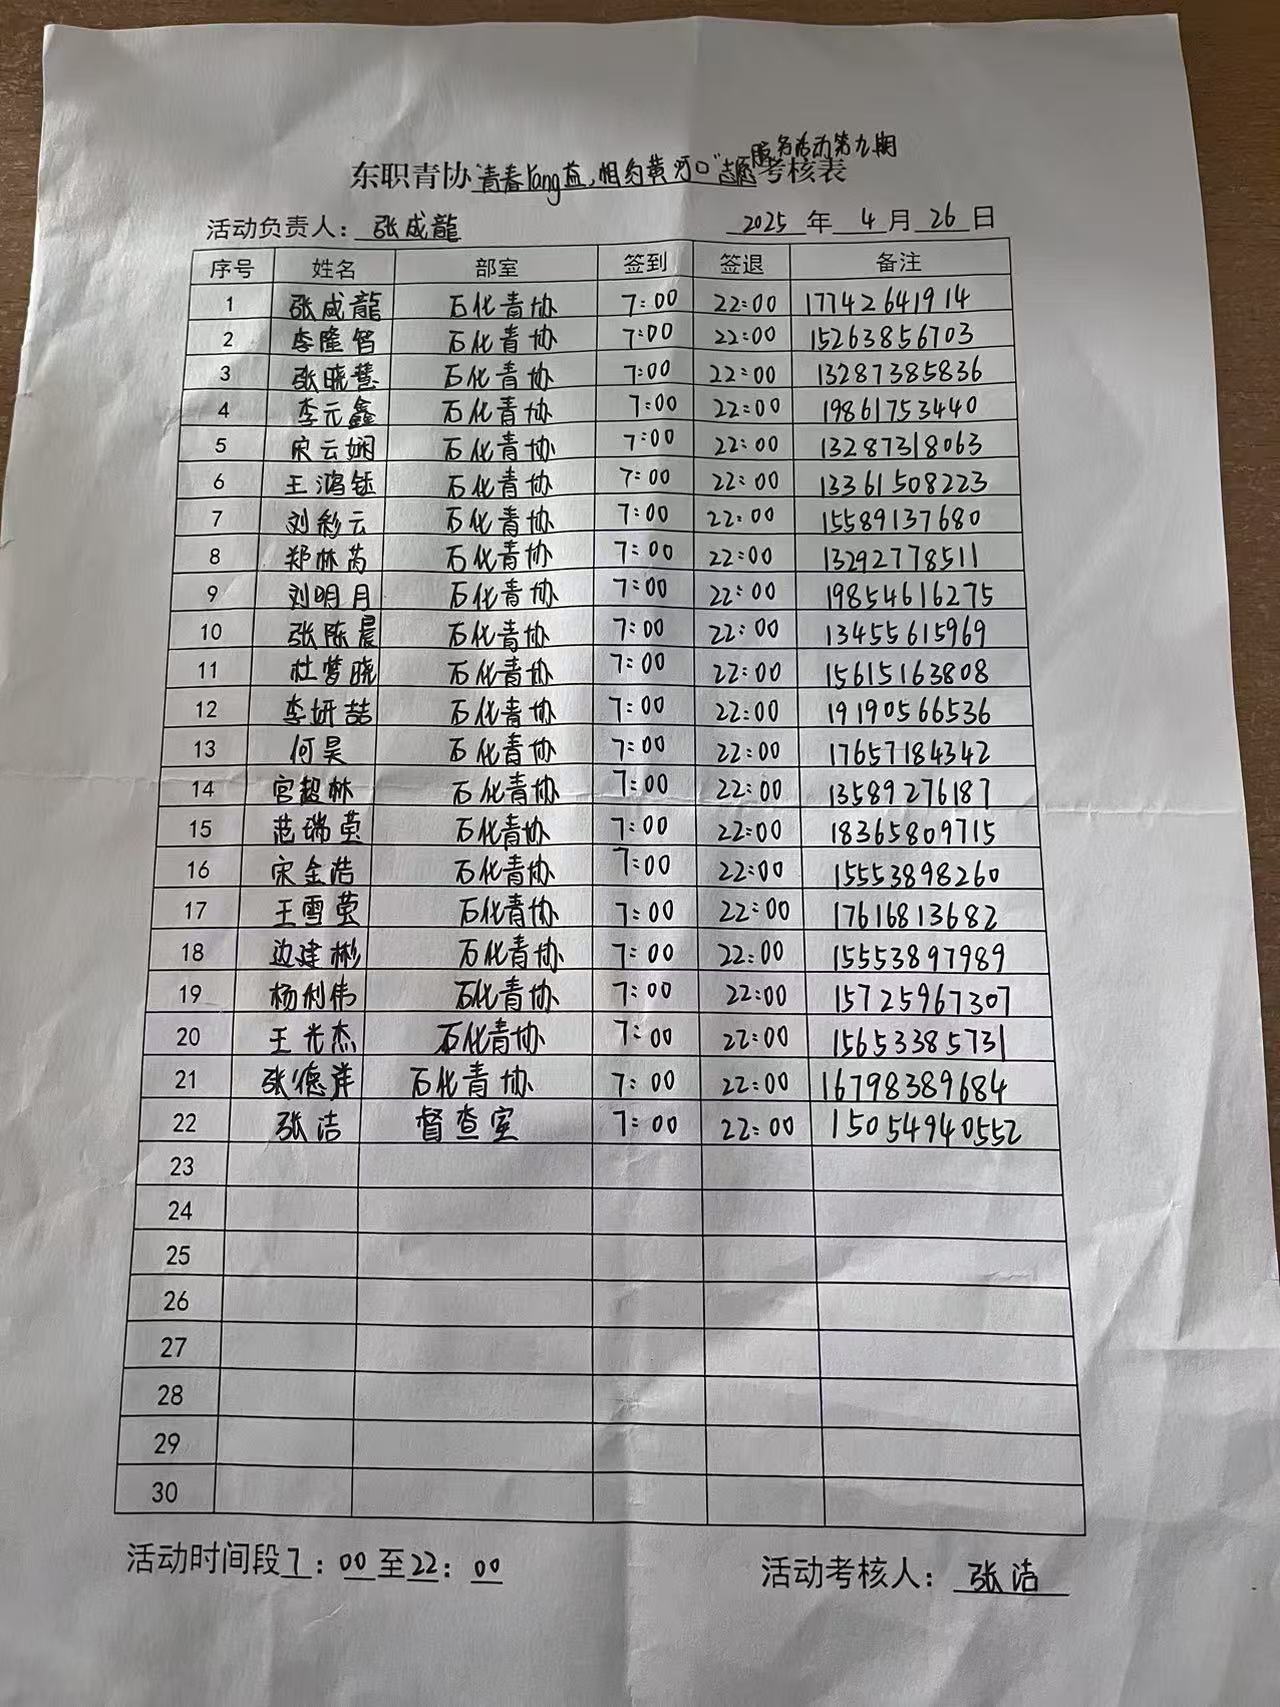 服务活动第九期
东职青协青春Yang益,相约黄河口"志愿考核表
活动负责人: 张成龍 2025 年 4 月 26 日
序号 姓名 部室 签到 签退 备注
1 张成龍 石化青协 7:00 22:00 17742641914
2 李隆智 石化青协 7:00 22:00 15263856703
3 张晓慧 石化青协 7:00 22:00 13287385836
4 李元鑫 石化青协 7:00 22:00 19861753440
5 宋云娴 石化青协 7:00 22:00 13287318063
6 王鸿钰 石化青协 7:00 22:00 13361508223
7 刘彩云 石化青协 7:00 22:00 15589137680
8 郑林芮 石化青协 7:00 22:00 13292778511
9 刘明月 石化青协 7:00 22:00 19854616275
10 张陈晨 石化青协 7:00 22:00 13455615969
11 杜梦晓 石化青协 7:00 22:00 15615163808
12 李妍喆 石化青协 7:00 22:00 19190566536
13 何昊 石化青协 7:00 22:00 17657184342
14 宫超林 石化青协 7:00 22:00 13589276187
15 范瑞莹 石化青协 7:00 22:00 18365809715
16 宋金浩 石化青协 7:00 22:00 15553898260
17 王雪莹 石化青协 7:00 22:00 17616813682
18 边建彬 石化青协 7:00 22:00 15553897989
19 杨利伟 石化青协 7:00 22:00 15725967307
20 王光杰 石化青协 7:00 22:00 15653385731
21 张德洋 石化青协 7:00 22:00 16798389684
22 张洁 督查室 7:00 22:00 15054940552
23
24
25
26
27
28
29
30
活动时间段7:00至22:00 活动考核人: 张洁